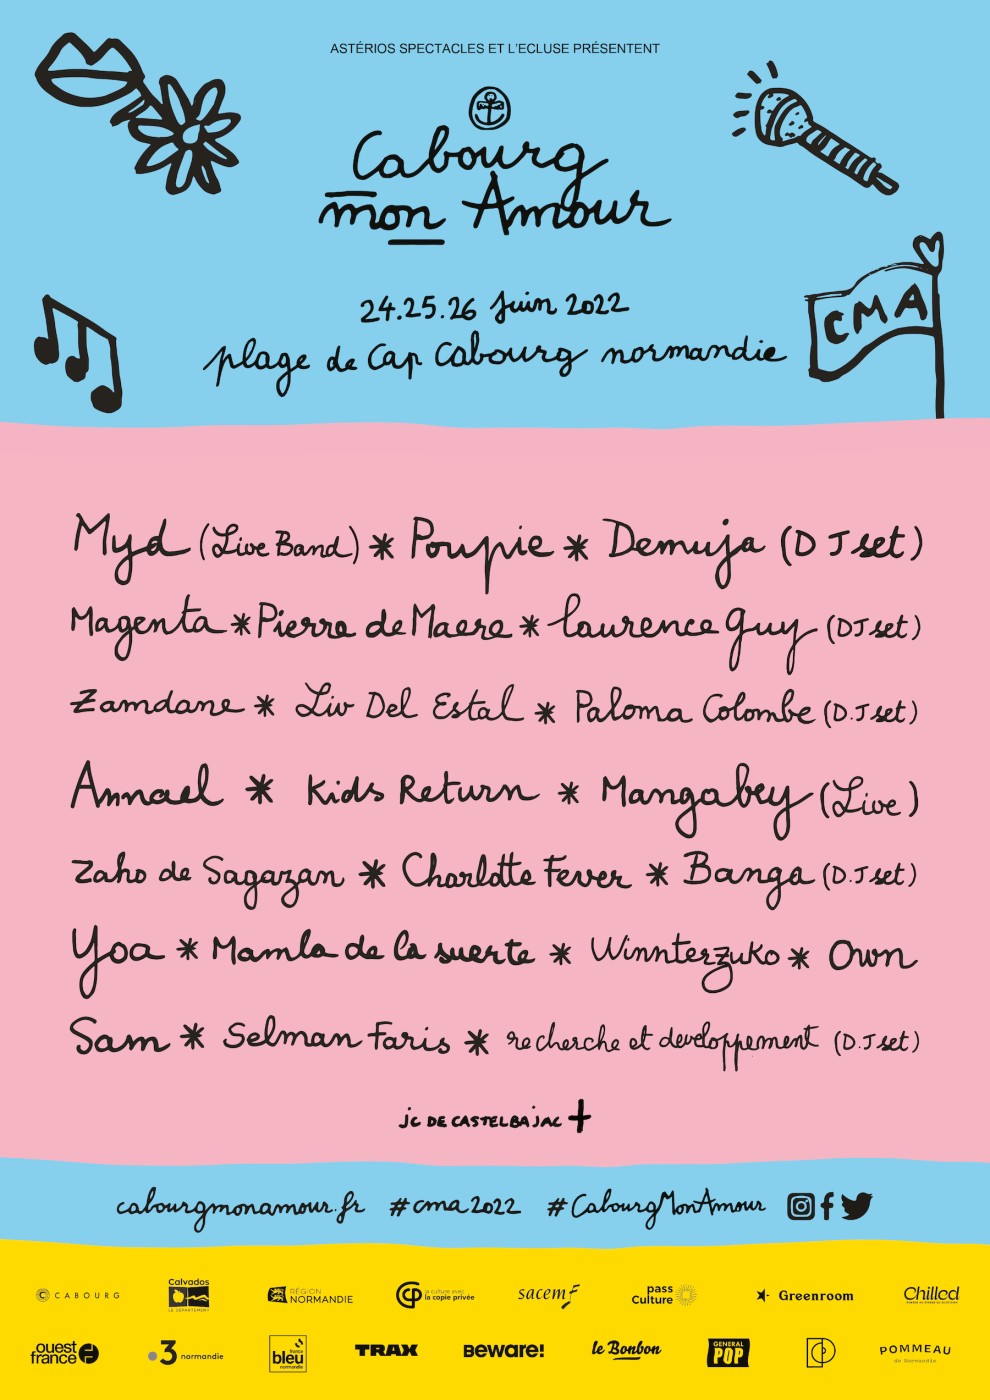 ASTÉRIOS SPECTACLES ET L'ECLUSE PRÉSENTENT
Cabourg
mon Amour
24.25.26 Juin 2022
plage de Cap Cabourg normandie
CMA
Myd (Live Band) * Poupie * Demuja (DJ set)
Magenta * Pierre de Maere * Laurence Guy (DJ set)
Zamdane * Liv Del Estal * Paloma Colombe (D.J set)
Annael * Kids Return * Mangabey (Live)
Zaho de Sagazan * Charlotte Fever * Banga (D.J set)
Yoa * Mamla de la suerte * Winnterzuko * Own
Sam * Selman Faris * recherche et developpement (D.J set)
jc DE CASTELBAJAC +
cabourgmonamour.fr #cma2022 #CabourgMonAmour
C CABOURG
Calvados
LE DÉPARTEMENT
RÉGION
NORMANDIE
la culture avec
la copie privée
sacem
pass
Culture
Greenroom
Chilled
ouest
france
3 normandie
france
bleu
normandie
TRAX
Beware!
le Bonbon
GENERAL
POP
POMMEAU
de Normandie